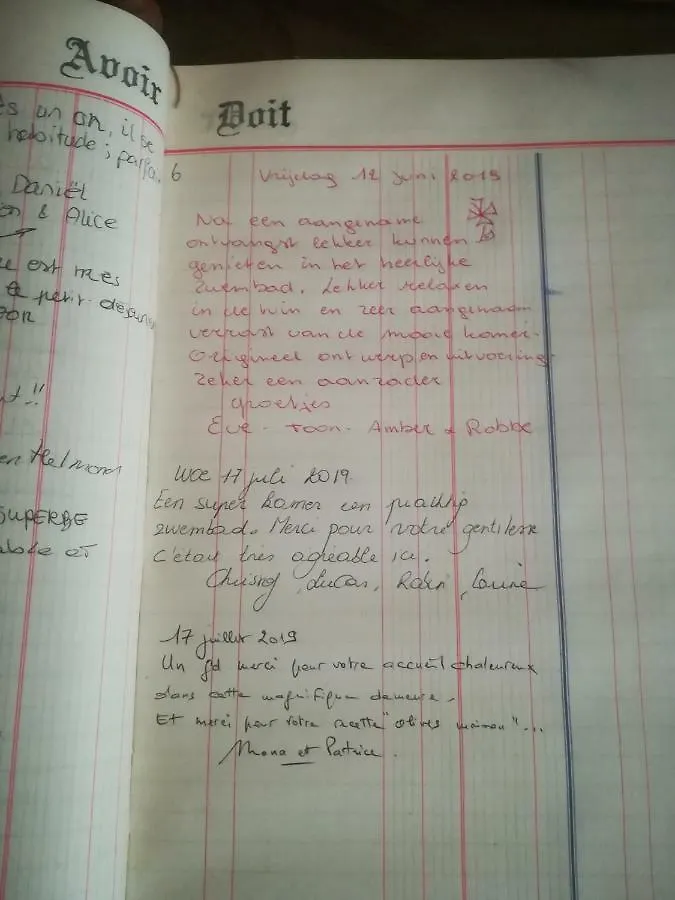 Avoir
un an, il se
habitude ; parfa.
Daniël
& Alice
est très
petit déjeun
!!
en Helmond
SUPERBE
et
Doit
6
Vrijdag 12 juni 2019
Na een aangename
ontvangst lekker kunnen
genieten in het heerlijke
zwembad. Lekker relaxen
in de tuin en zeer aangenaam
verrast van de mooie kamer.
Origineel ontwerp en uitvoering
zeker een aanrader
Groetjes
Eve - Toon - Amber & Robbe
Woe 17 juli 2019
Een super kamer een prachtig
zwembad. Merci pour votre gentilesse
C'était très agréable ici.
Lucas,
17 juillet 2019
Un gd merci pour votre accueil chaleureux
dans cette magnifique demeure.
Et merci pour votre recette "olives maison"...
Mona et Patrice.